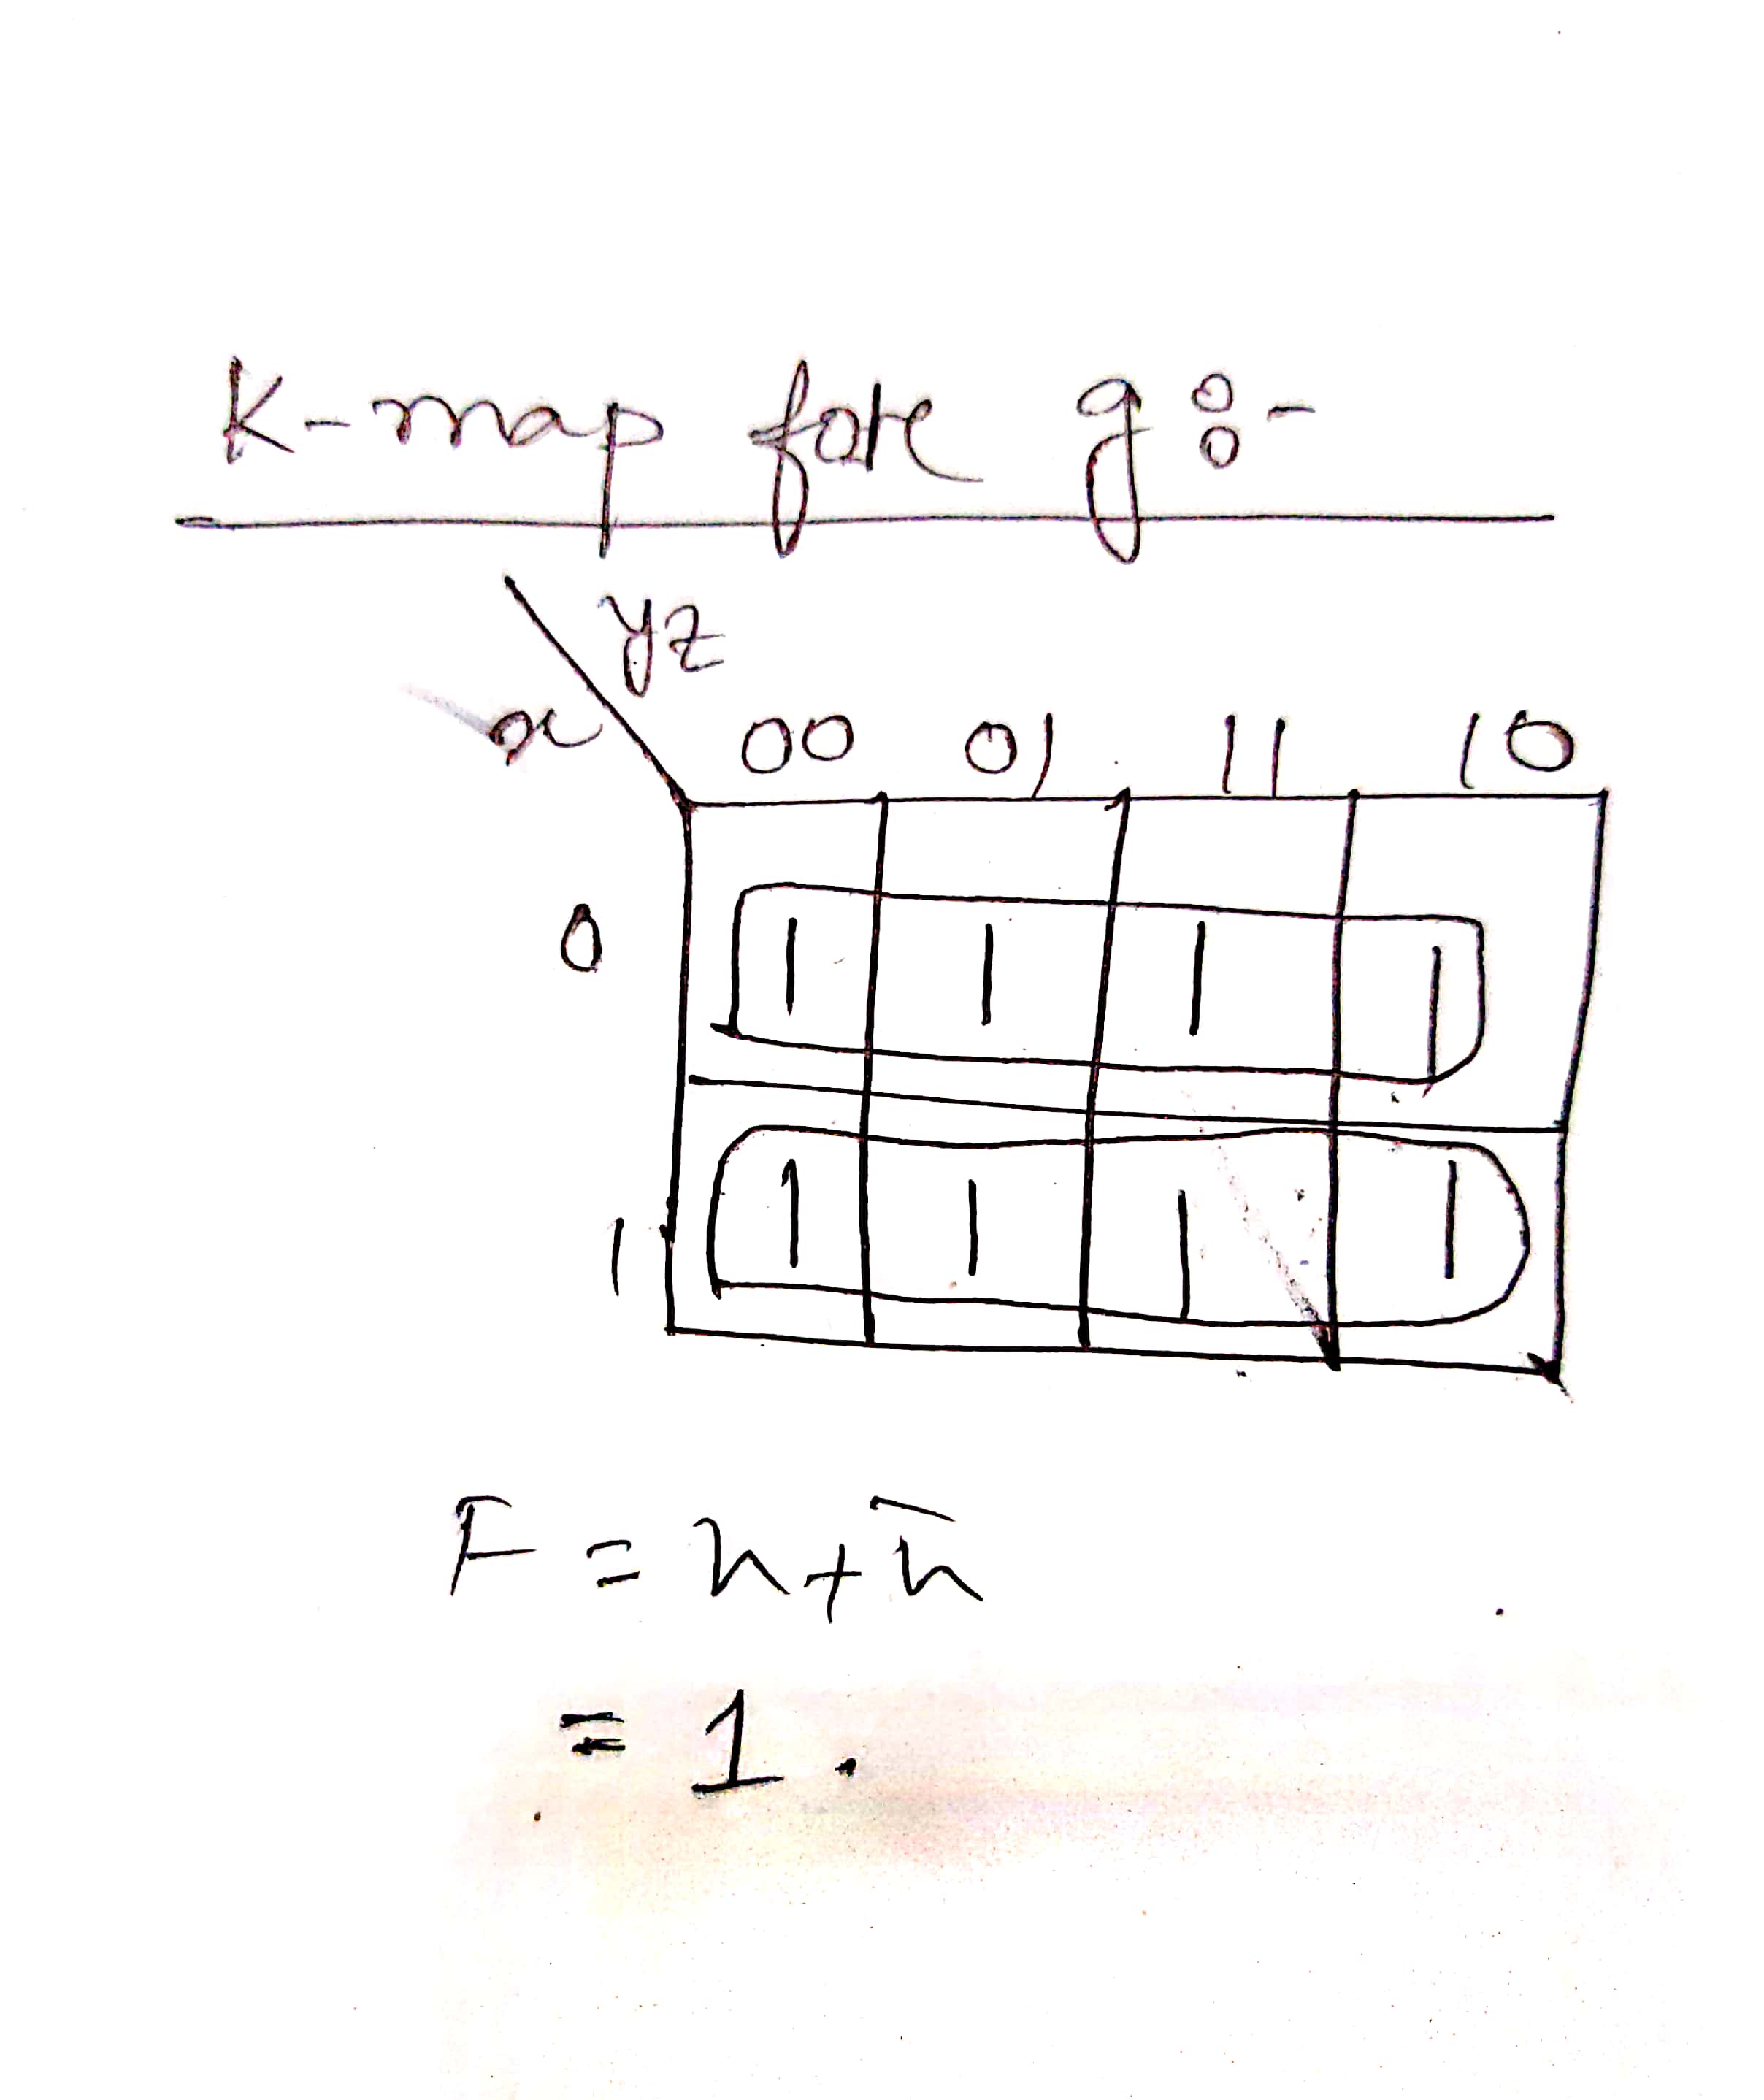 K-map fore g:-
yz
x 00 01 11 10
0 1 1 1 1
1 1 1 1 1
F = x + x̄
= 1.